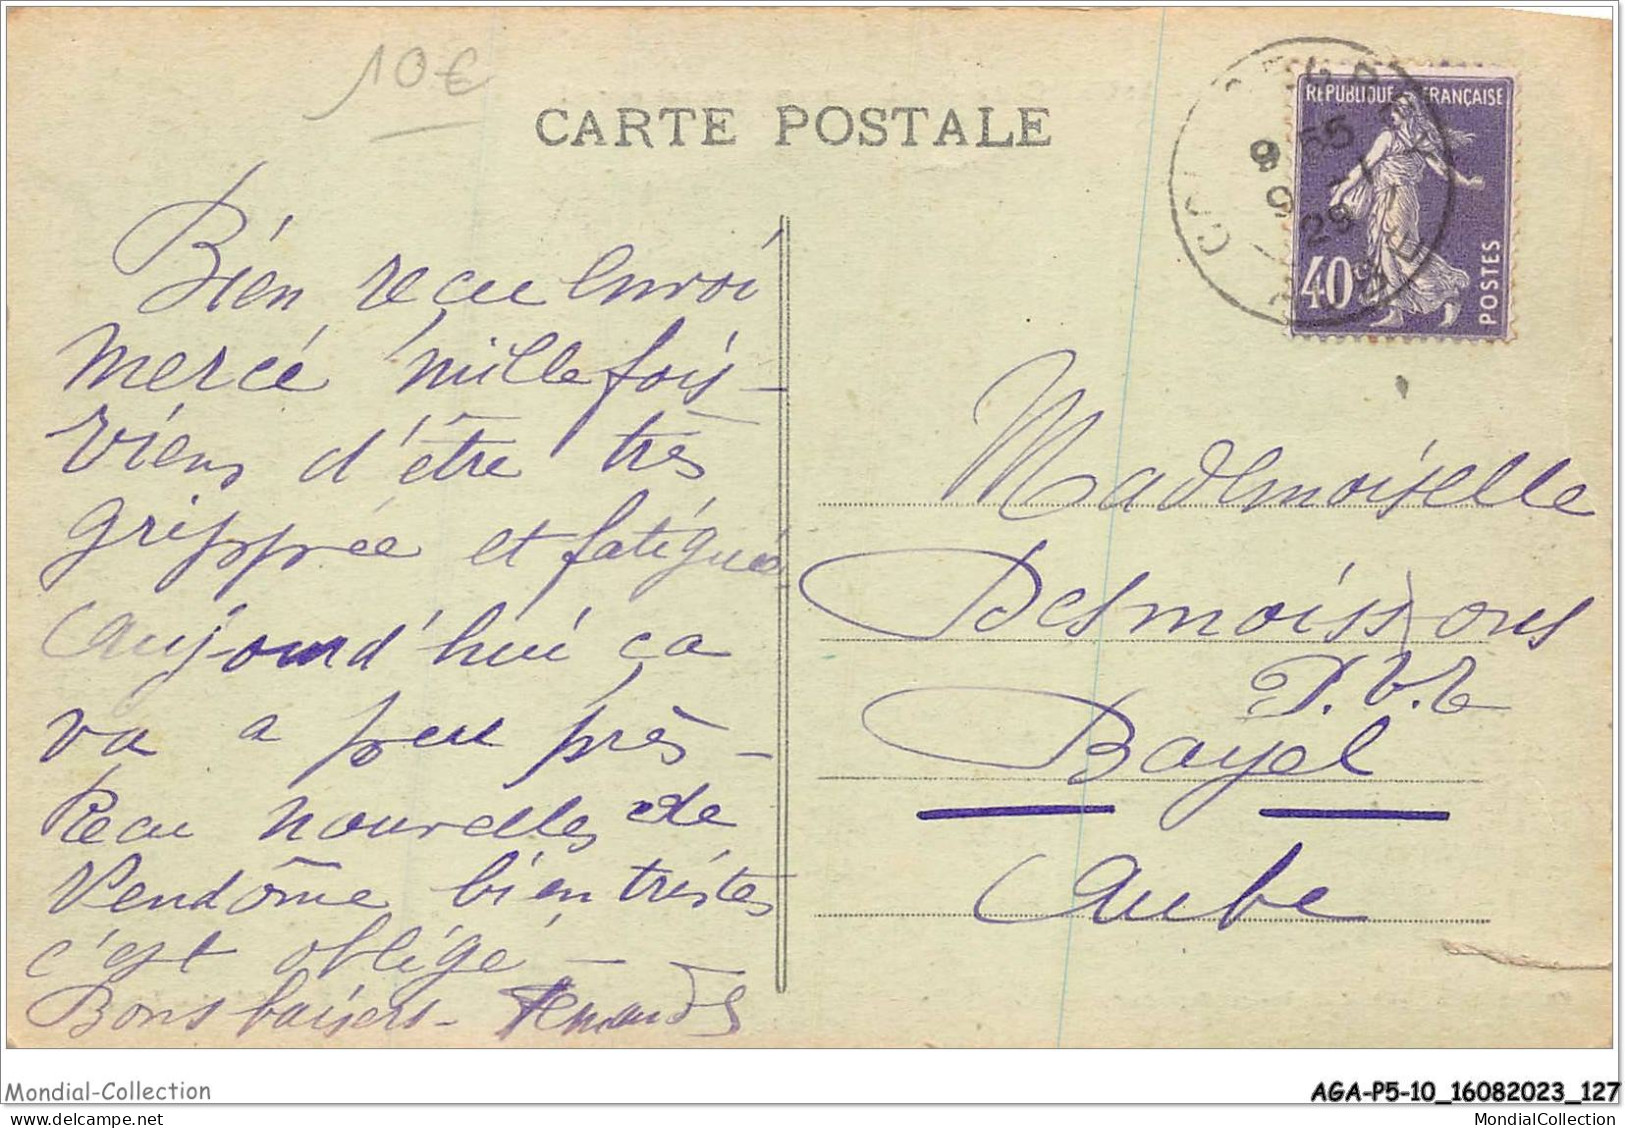 10€
CARTE POSTALE
REPUBLIQUE FRANÇAISE
40c
POSTES
9 55
9 -1
29
Bien reçu envoi
mercé mille fois -
viens d'être très
grippée et fatiguée
Aujourd'hui ça
va a peu près -
Recu nouvelles de
Vendôme bien tristes
c'est obligé -
Bons baisers -
Mademoiselle
Desmoissons
P.V.E
Bayel
Aube
Mondial-Collection
AGA-P5-10_16082023_127
MondialCollection
MondialCollection